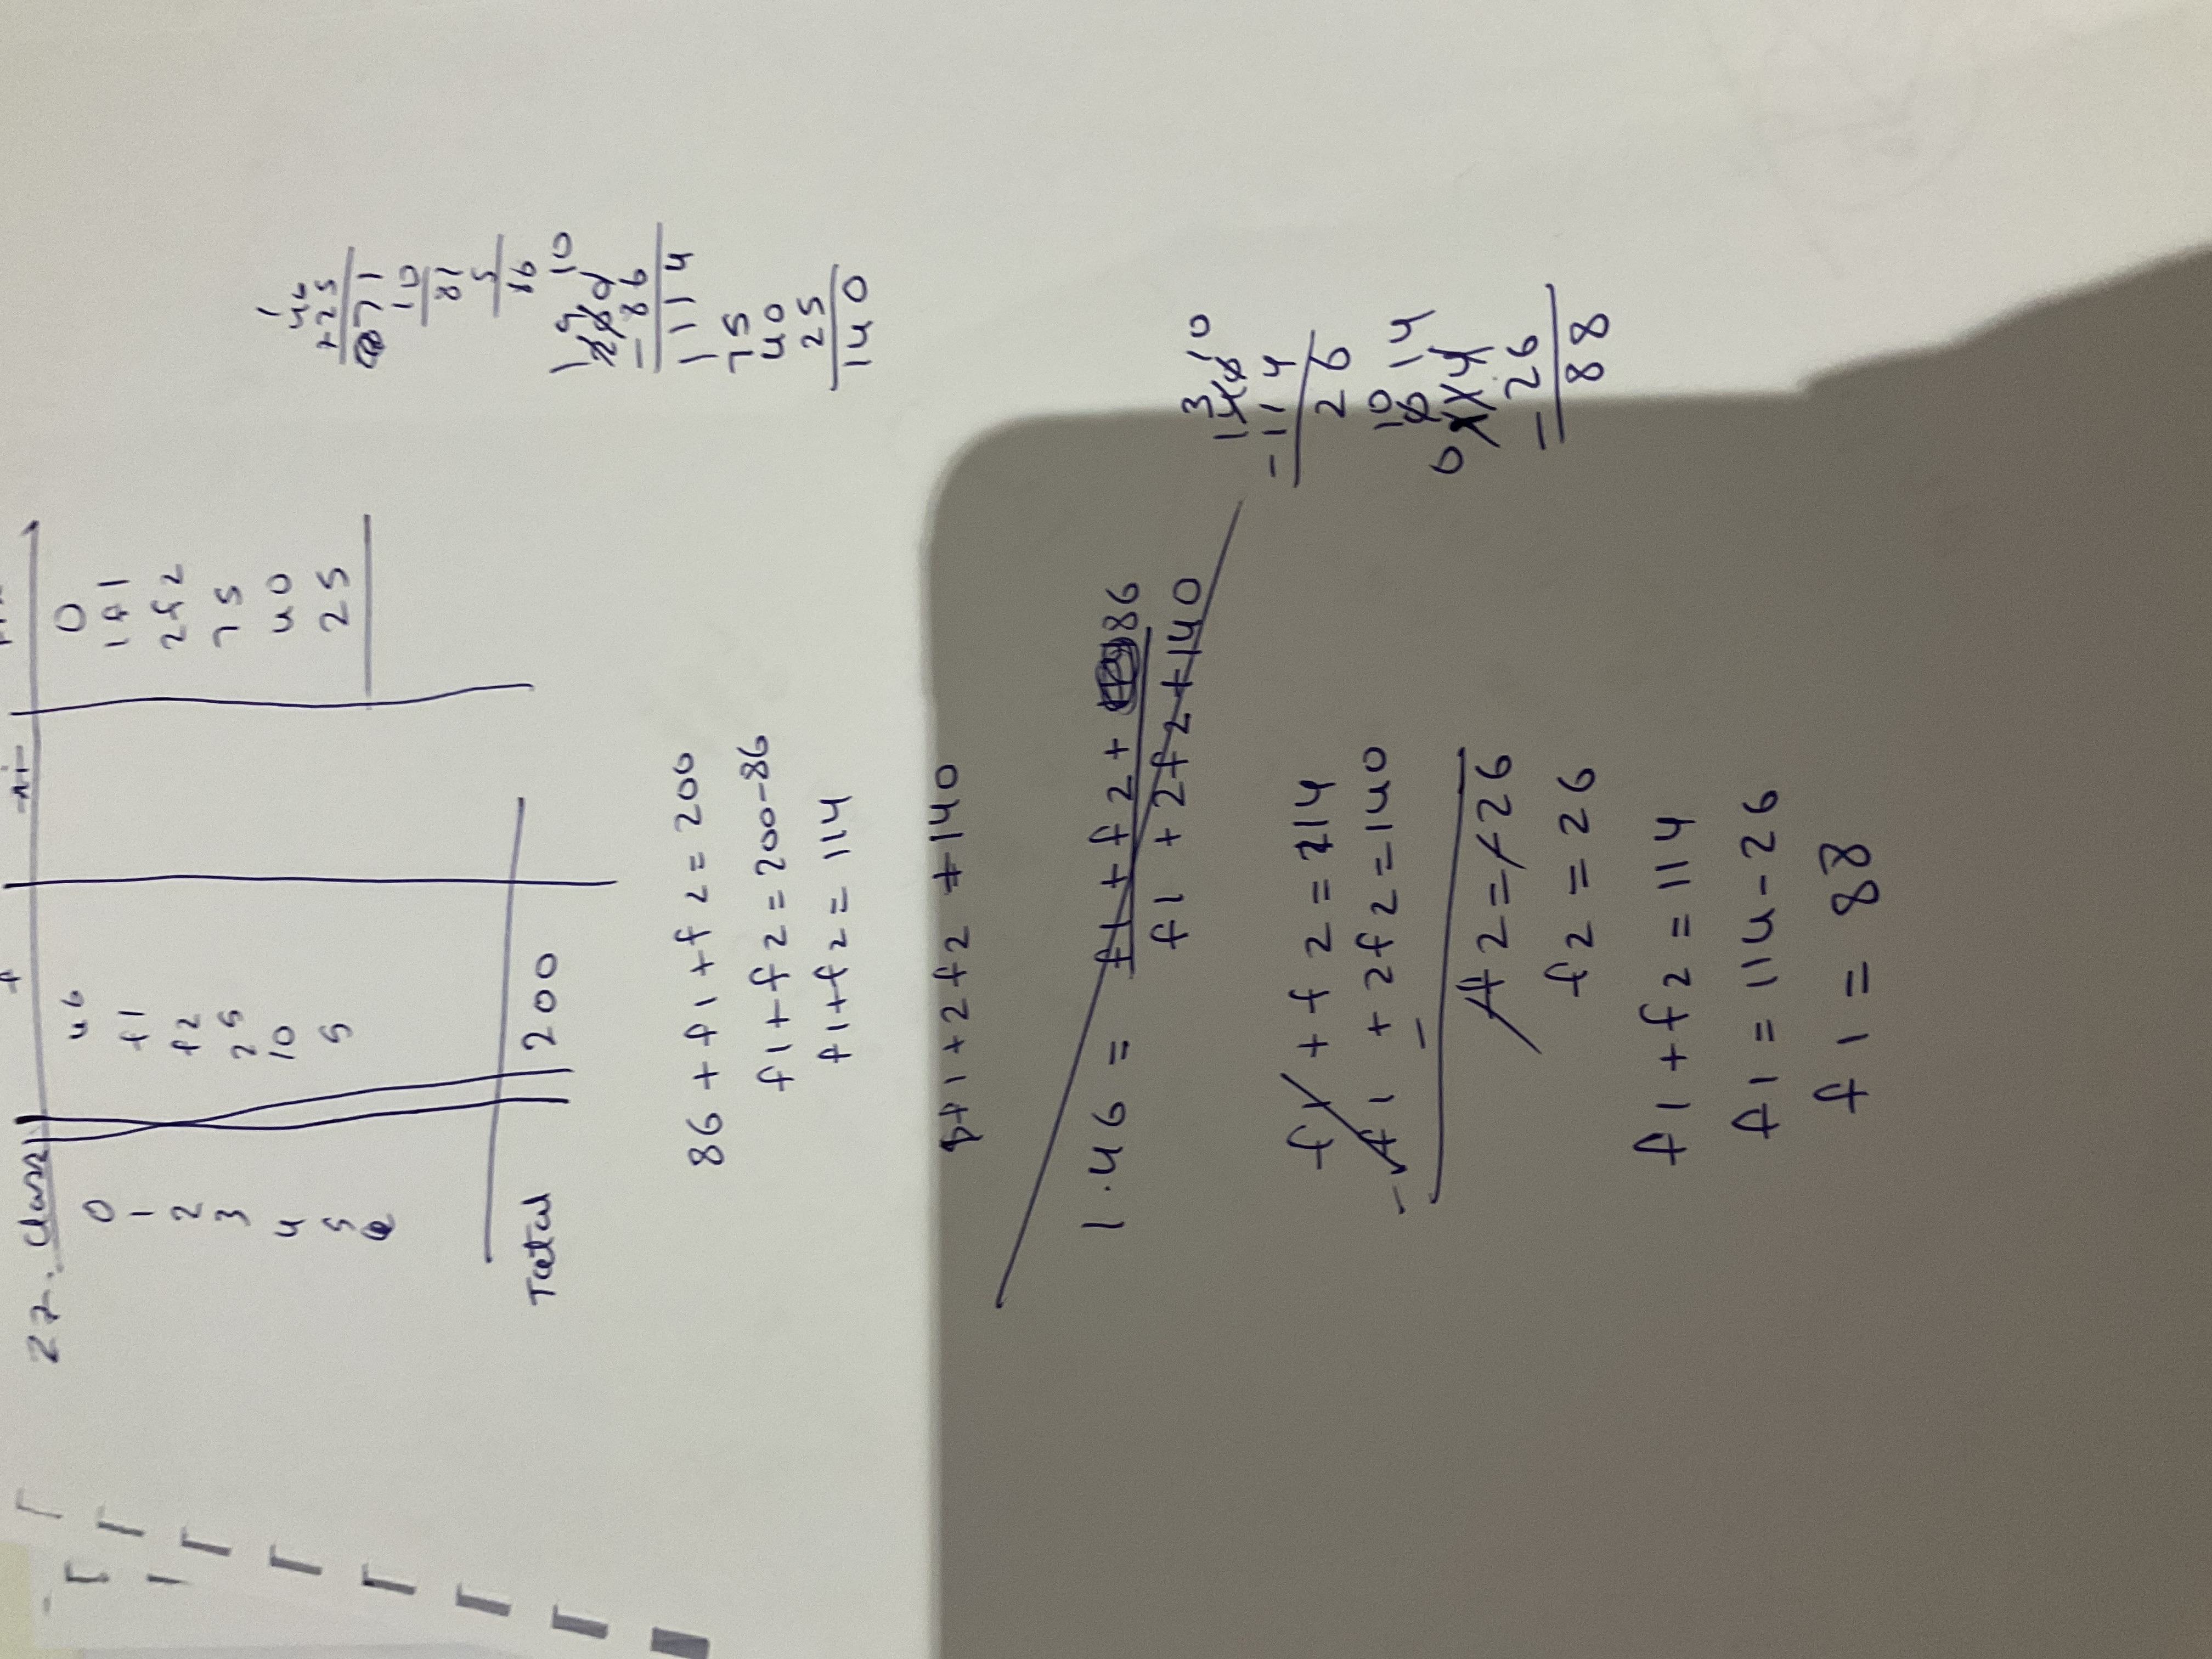 27. Class f xi
0 46 0
1 f1 1f1
2 f2 2f2
3 25 75
4 10 40
5 5 25
Total 200
86 + f1 + f2 = 200
f1 + f2 = 200 - 86
f1 + f2 = 114
f1 + 2f2 + 140
1.46 = f1 + f2 + 86
f1 + 2f2 + 140
f1 + f2 = 114
- f1 + 2f2 = 140
-
f2 = 26
f2 = 26
f1 + f2 = 114
f1 = 114 - 26
f1 = 88
1
46
+25
71
10
81
5
86
1 9 10
200
- 86
114
75
40
25
140
3 10
140
- 114
26
10
0 0 14
114
- 26
88